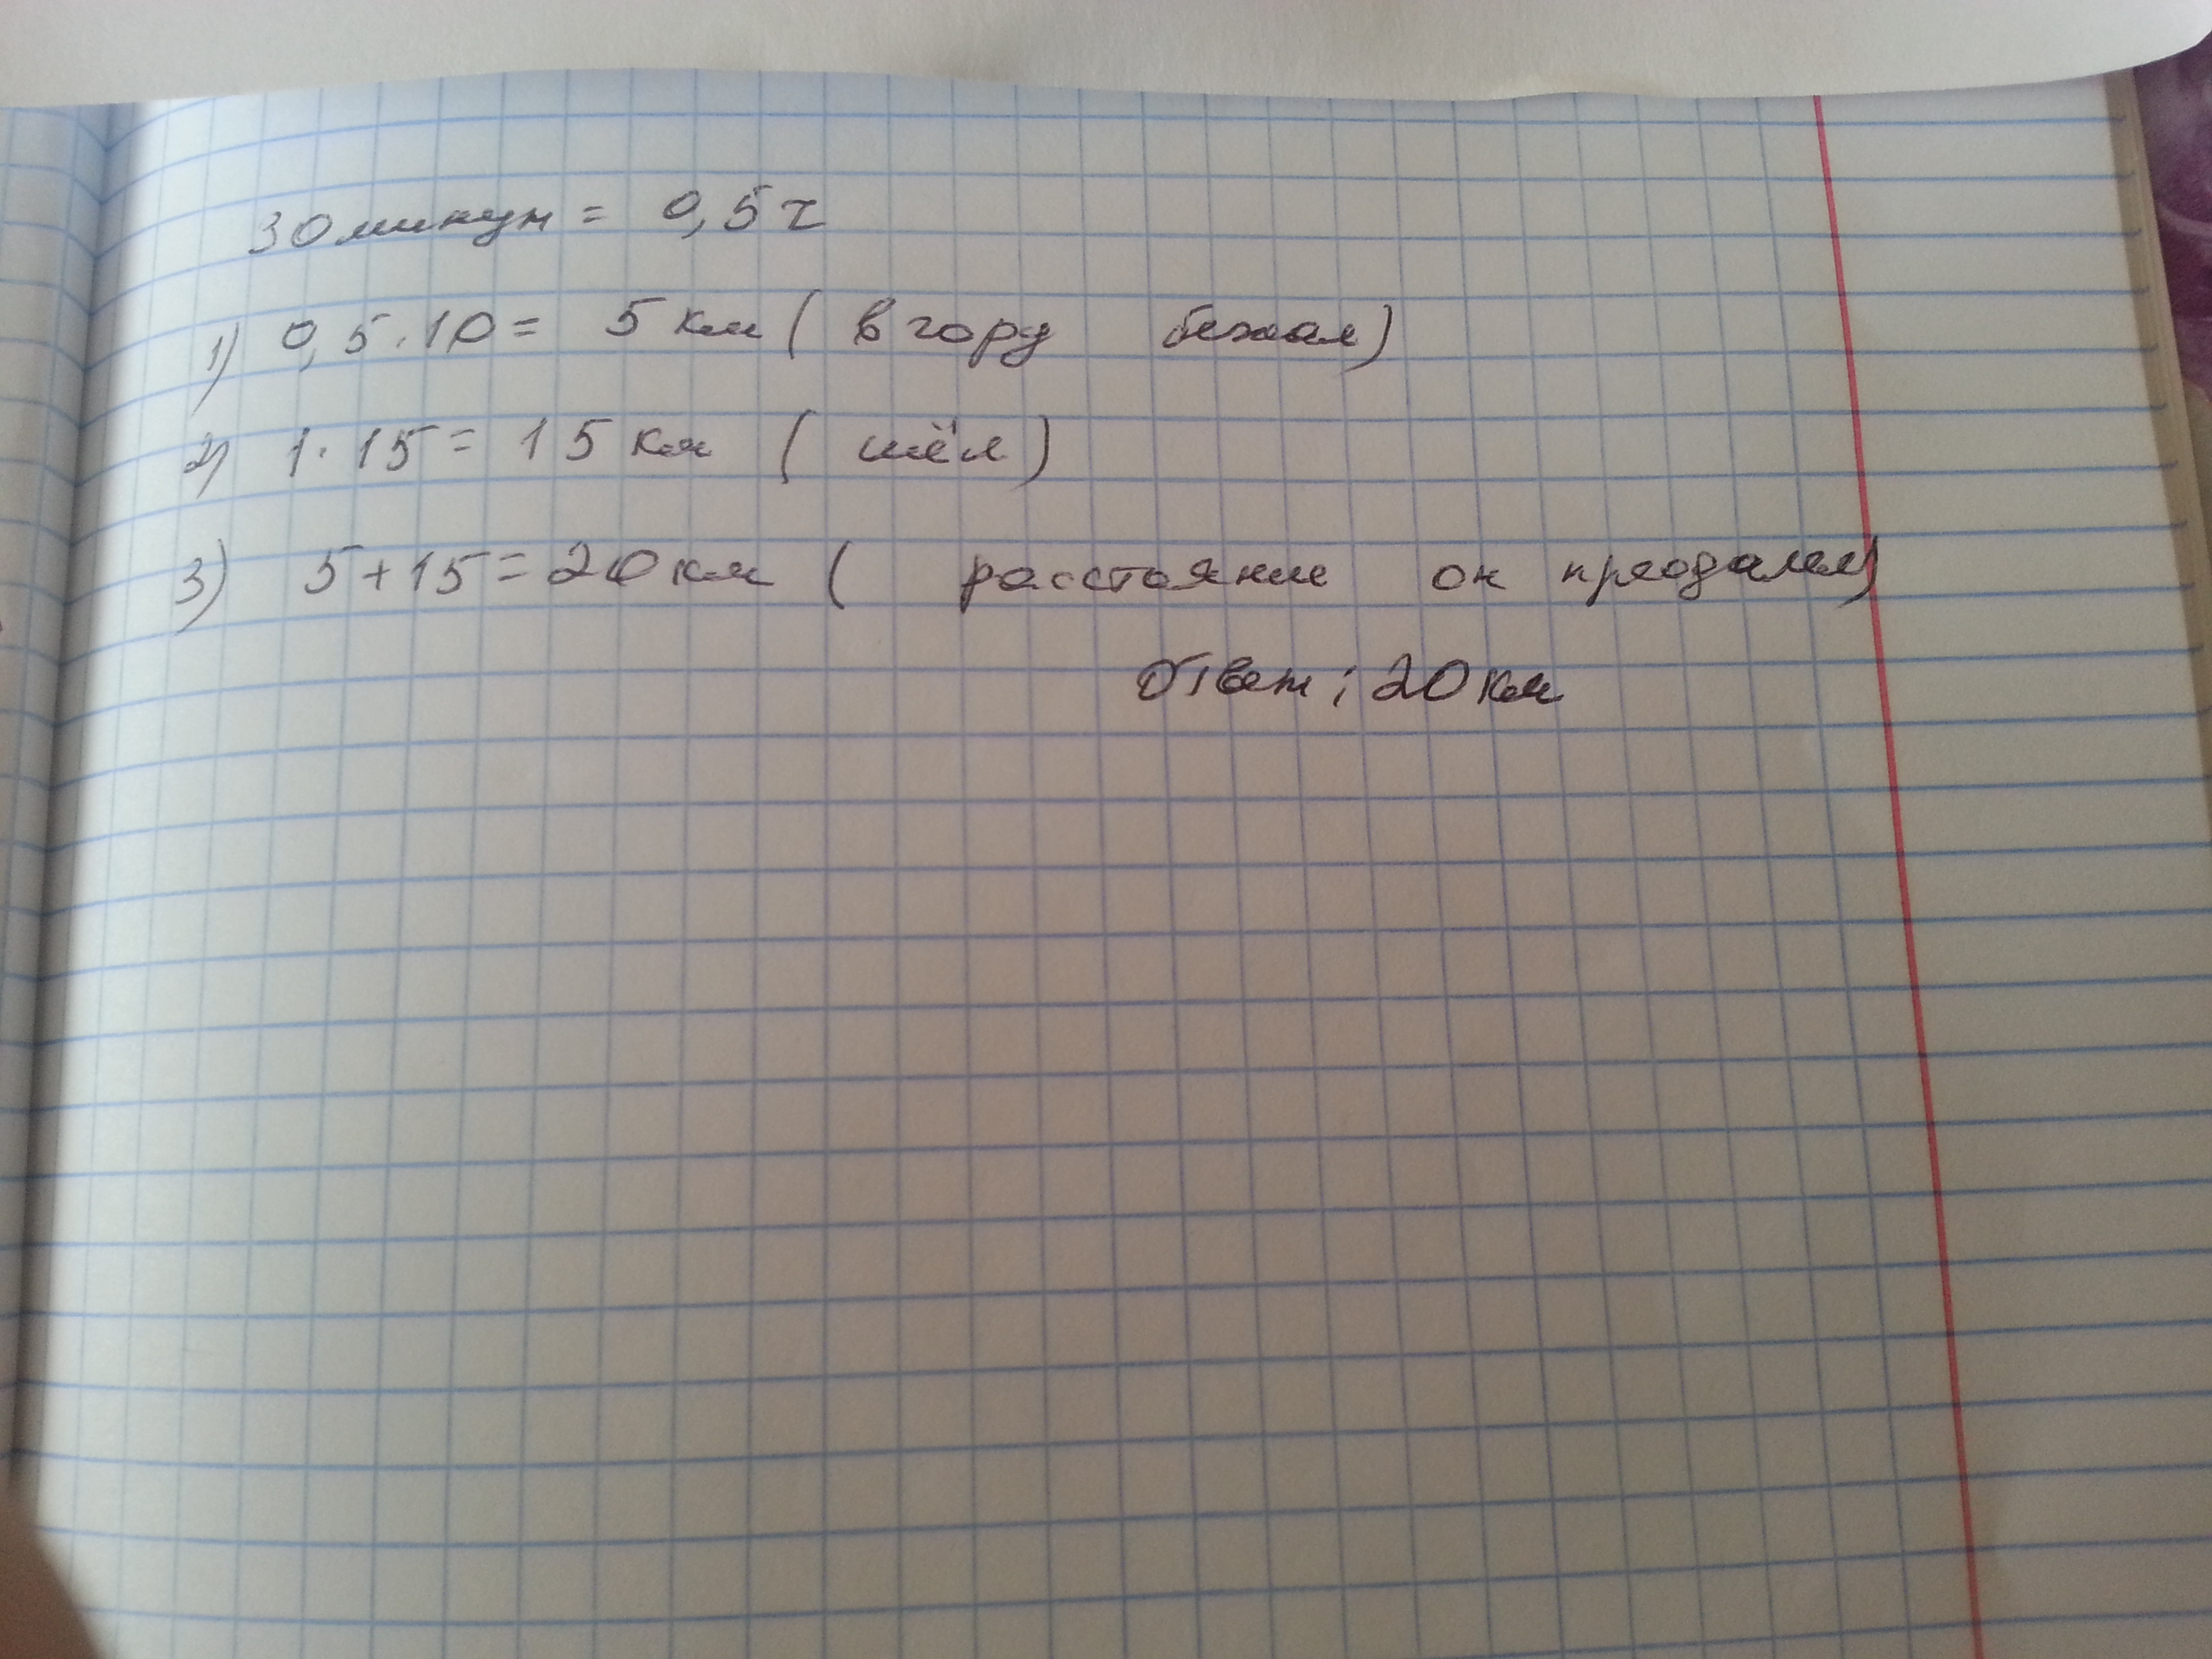 30 минут = 0,5 ч
1) 0,5 · 10 = 5 км ( в гору бежал)
2) 1 · 15 = 15 км ( шёл)
3) 5 + 15 = 20 км ( расстояние он преодалел)
Ответ ; 20 км